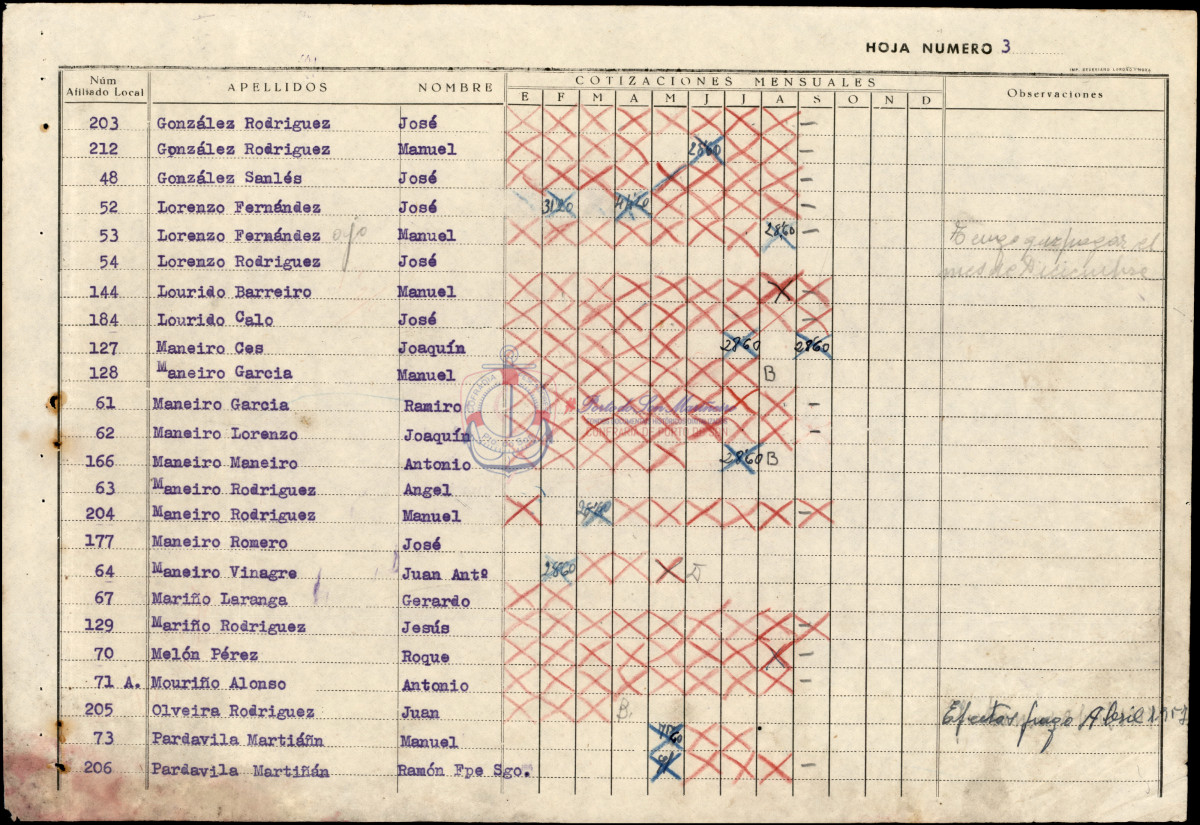 HOJA NUMERO 3
Núm Afiliado Local APELLIDOS NOMBRE COTIZACIONES MENSUALES Observaciones
E F M A M J J A S O N D
203 González Rodriguez José -
212 González Rodriguez Manuel 2860 -
48 González Sanlés José -
52 Lorenzo Fernández José -
53 Lorenzo Fernández ojo Manuel 2860 -
54 Lorenzo Rodriguez José
144 Lourido Barreiro Manuel -
184 Lourido Calo José -
127 Maneiro Ces Joaquín 2860 2860
128 Maneiro Garcia Manuel B
61 Maneiro Garcia Ramiro -
62 Maneiro Lorenzo Joaquín -
166 Maneiro Maneiro Antonio 2860 B
63 Maneiro Rodriguez Angel
204 Maneiro Rodriguez Manuel -
177 Maneiro Romero José
64 Maneiro Vinagre Juan Antº 2860
67 Mariño Laranga Gerardo
129 Mariño Rodriguez Jesús -
70 Melón Pérez Roque -
71 A. Mouriño Alonso Antonio -
205 Olveira Rodriguez Juan B. Abril
73 Pardavila Martiáñn Manuel
206 Pardavila Martiñán Ramón Fpe Sgo. -